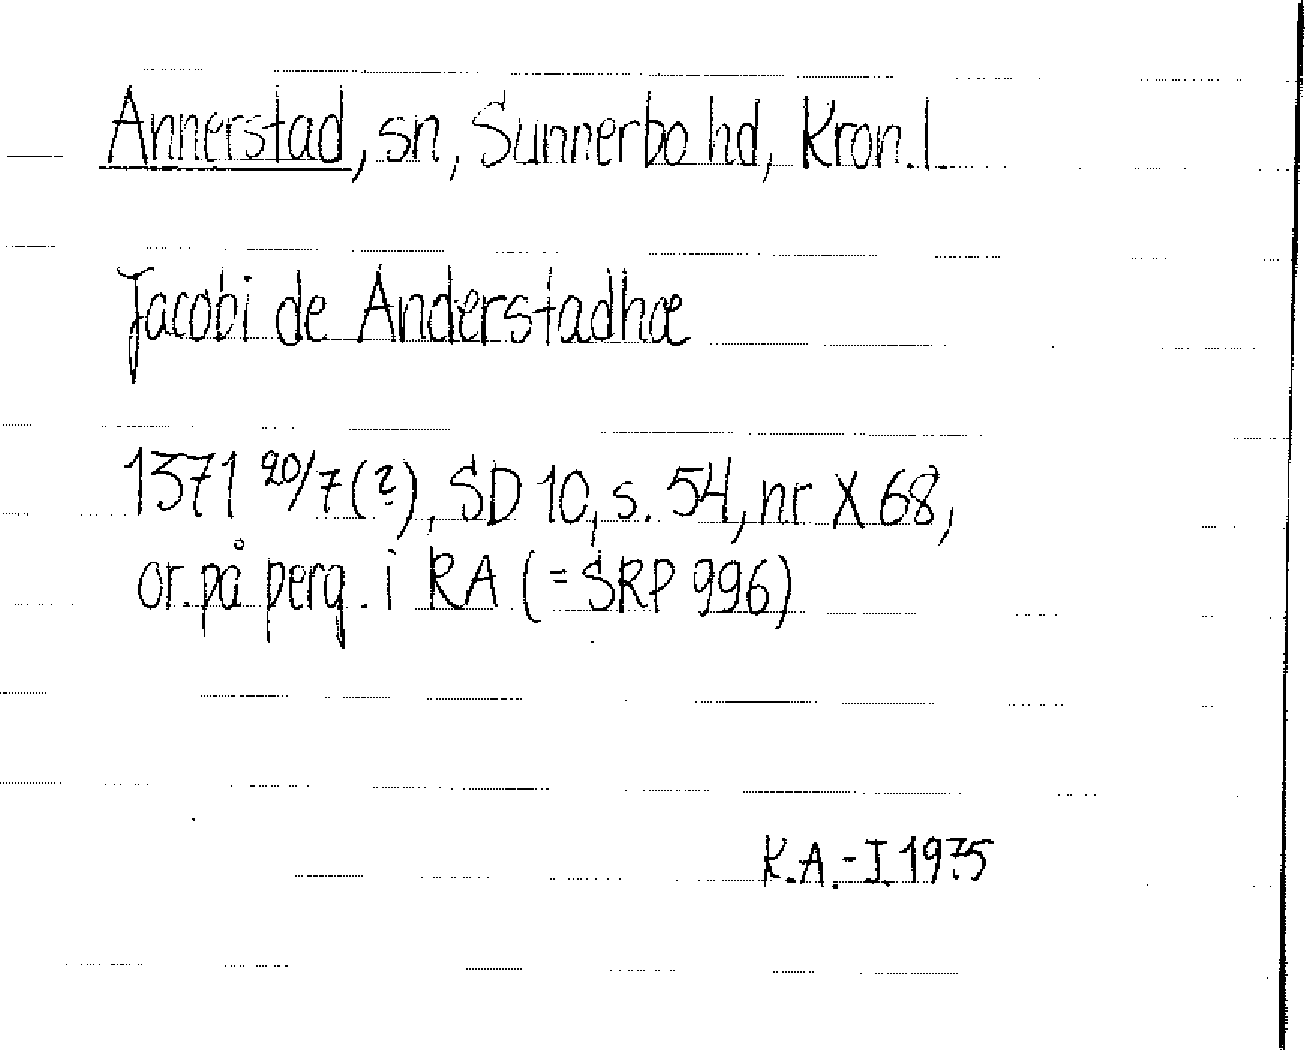 Annerstad, sn, Sunnerbo hd, Kron. l
Jacobi de Anderstadhæ
1371 20/7 (?), SD 10, s. 54, nr X 68,
or. på perg. i RA (= SRP 996)
K.A.-I. 1975